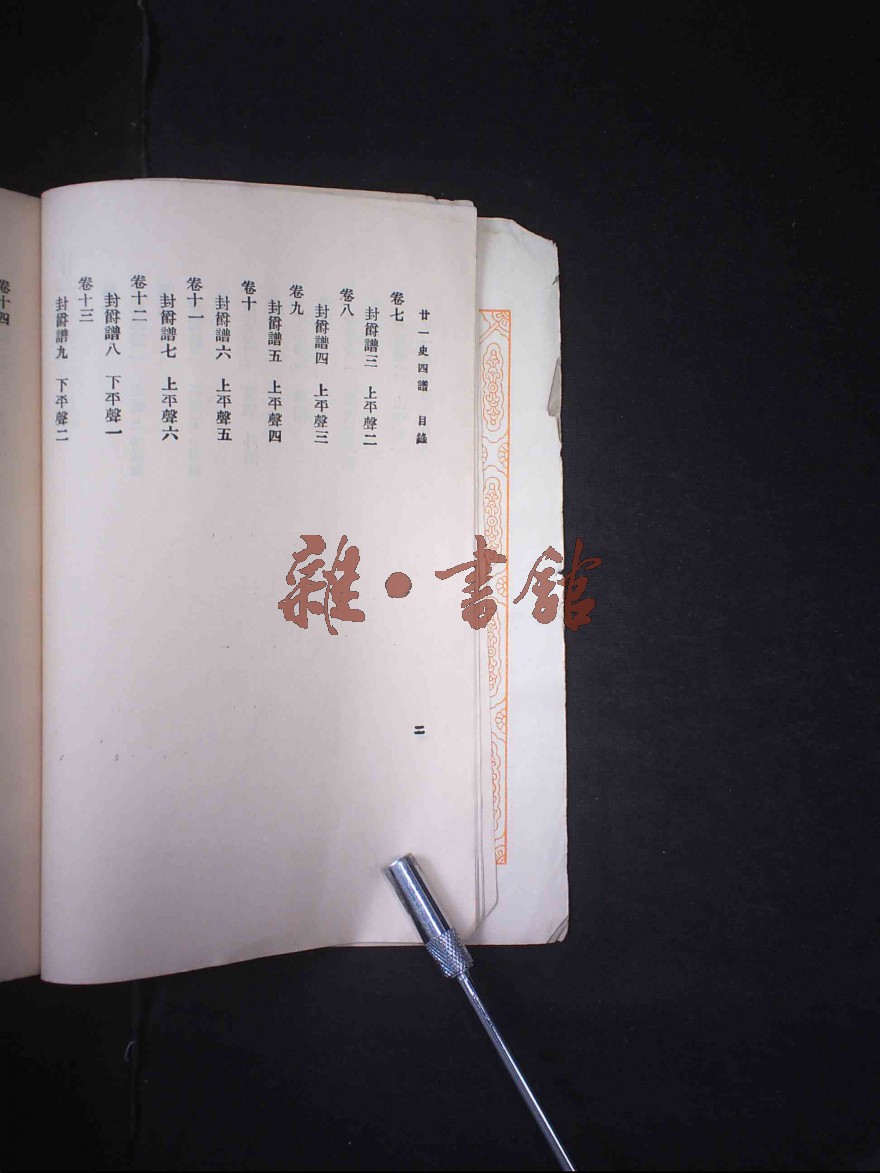 廿一史四譜　目錄
二
卷七
封爵譜三　上平聲二
卷八
封爵譜四　上平聲三
卷九
封爵譜五　上平聲四
卷十
封爵譜六　上平聲五
卷十一
封爵譜七　上平聲六
卷十二
封爵譜八　下平聲一
卷十三
封爵譜九　下平聲二
卷十四
雜·書館